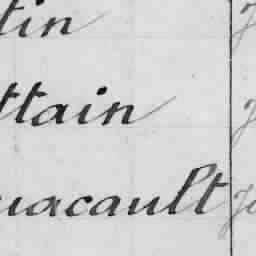 tin
ttain
uacault